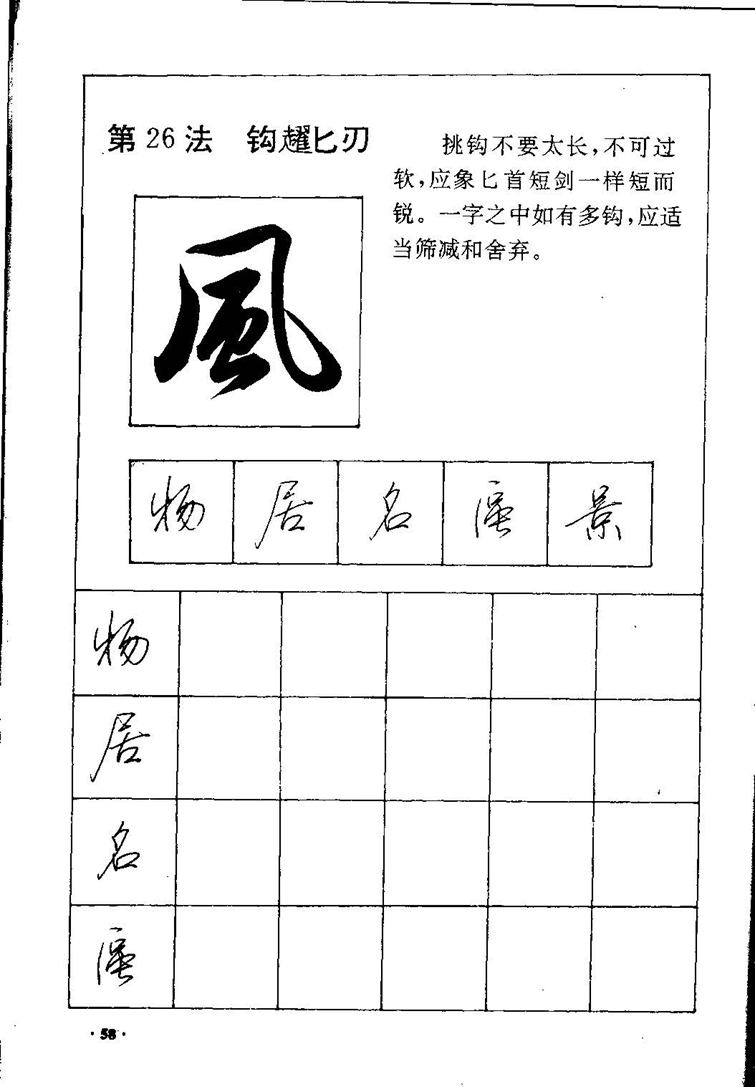 第26法 钩趯匕刃
挑钩不要太长,不可过
软,应象匕首短剑一样短而
锐。一字之中如有多钩,应适
当筛减和舍弃。
風
物 居 名 景
物
居
名
·58·